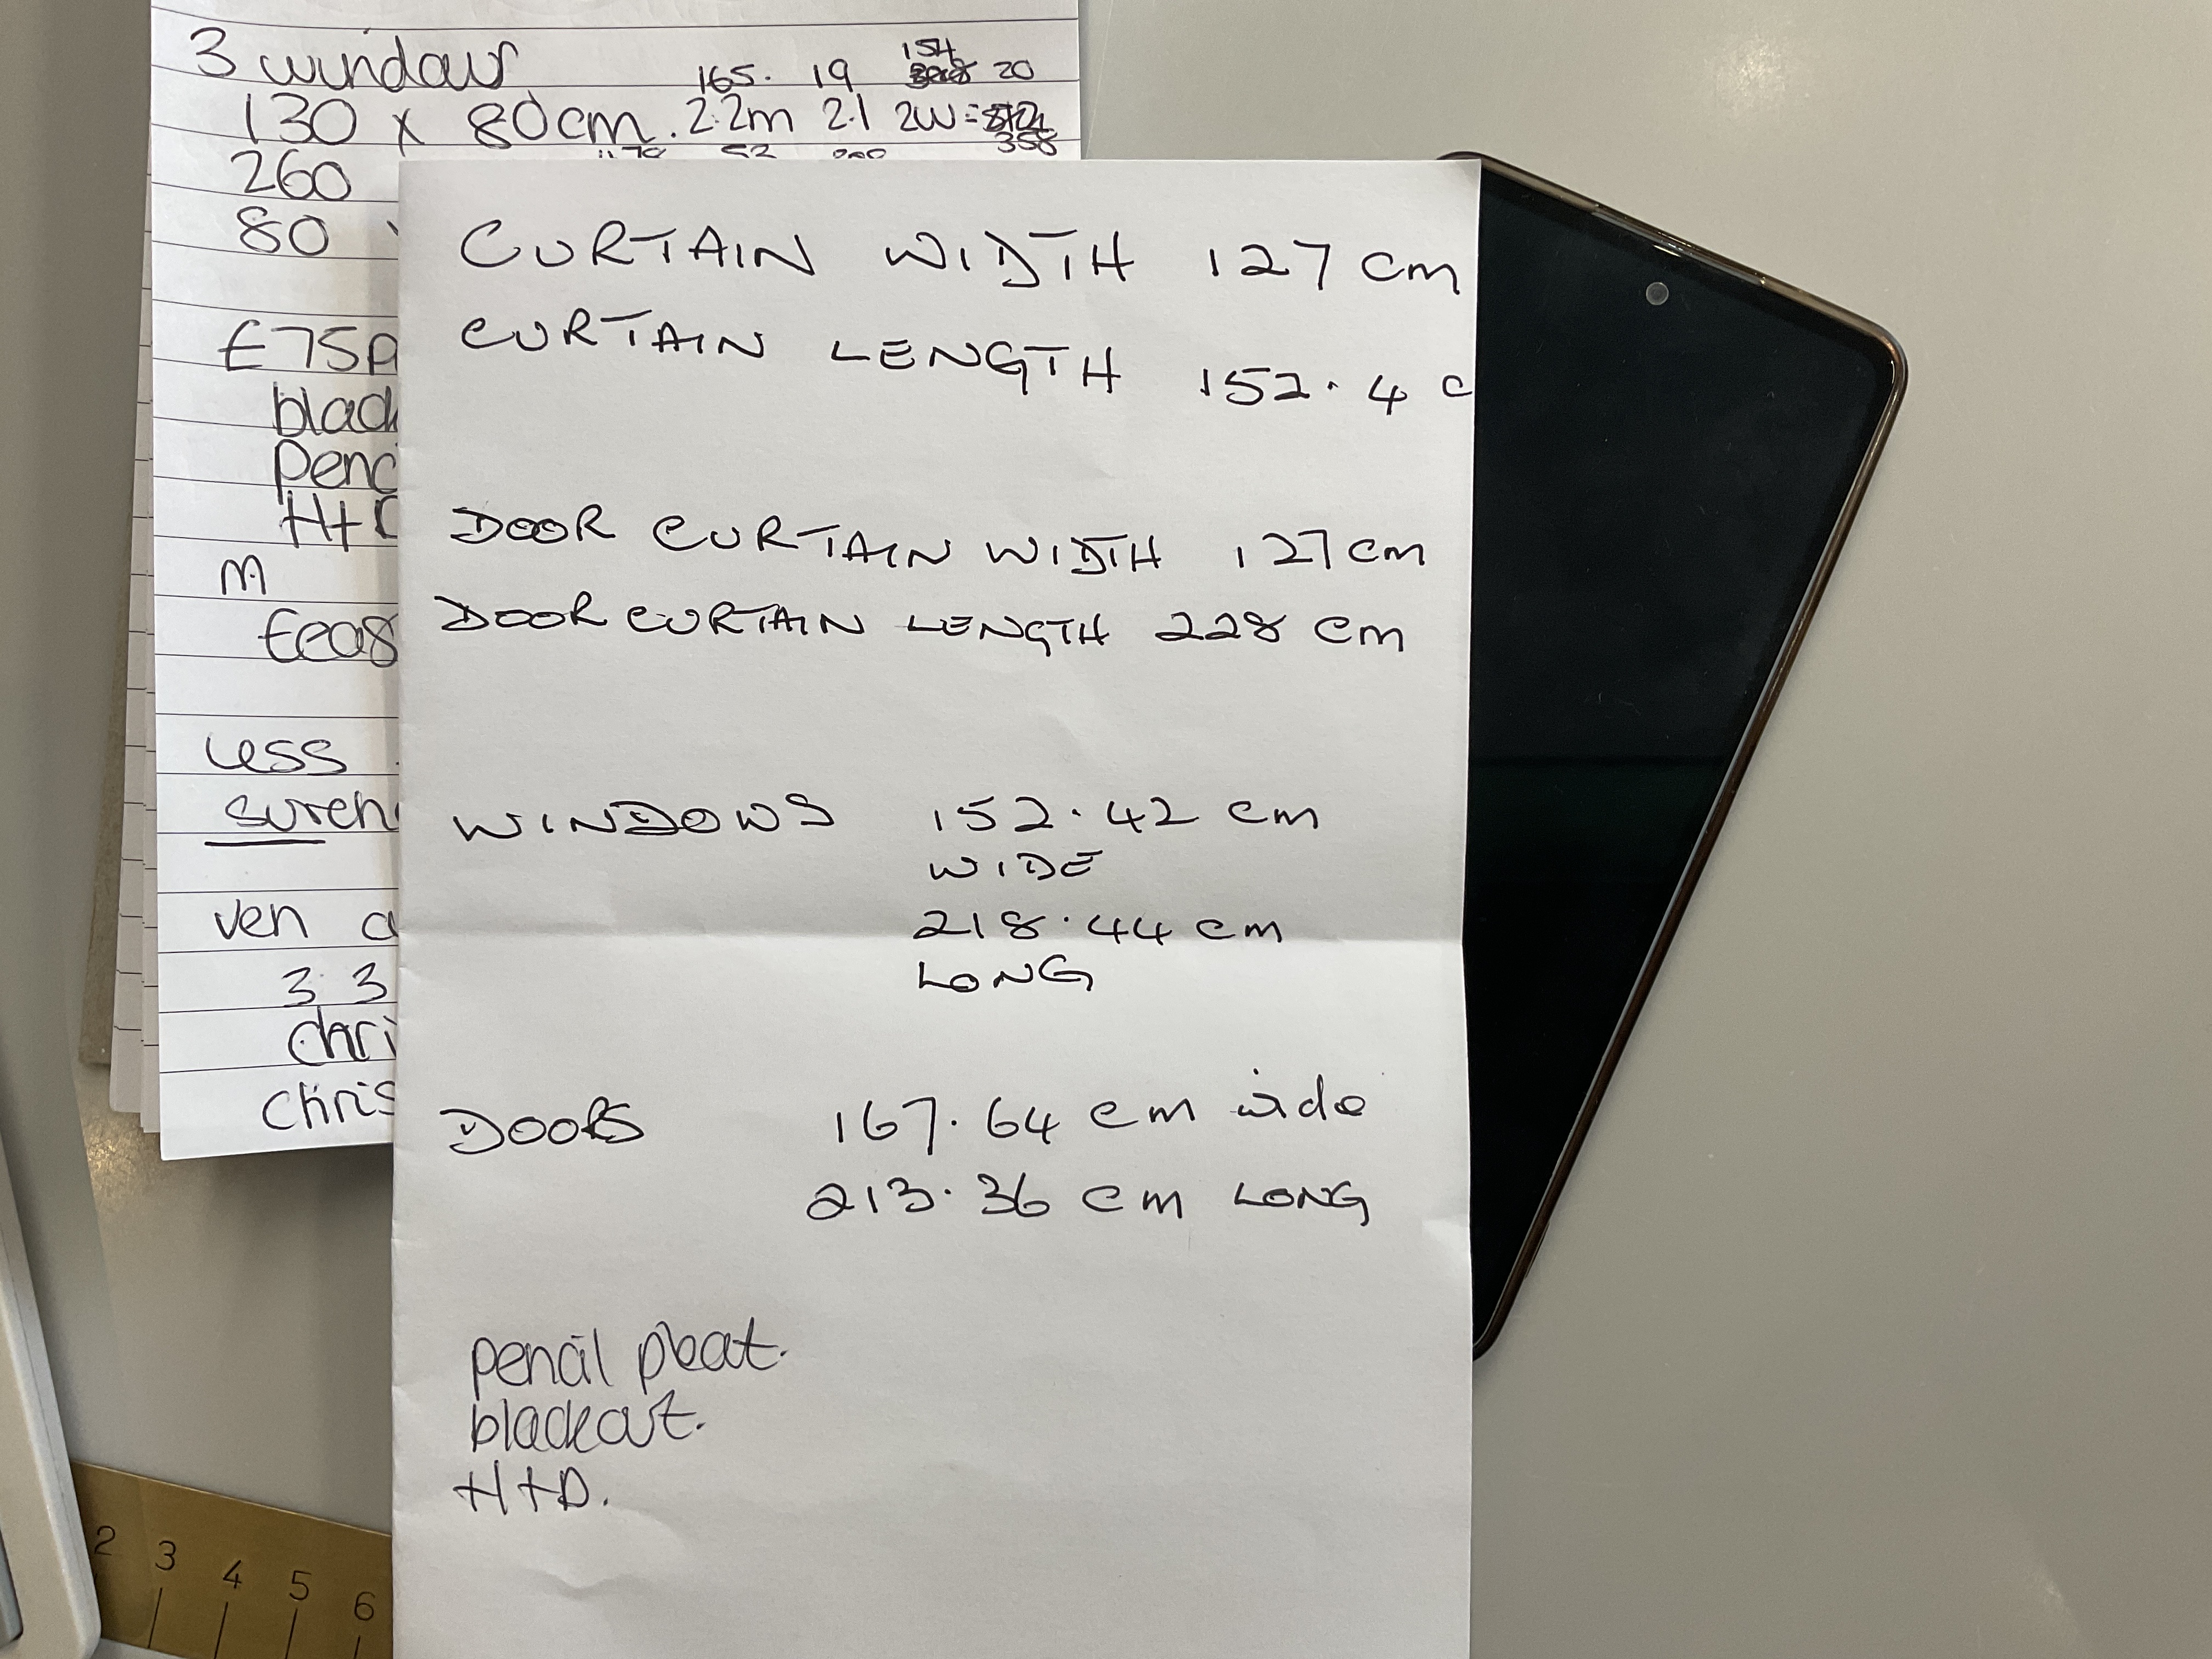 3 windows
165. 19 154 20
130 x 80cm. 2.2m 2.1 2W =
358
260
80
£75p
black
penc
H+D
m
less
suren
ven a
3 3
chri
chris
CURTAIN WIDTH 127 cm
CURTAIN LENGTH 152.4 c
DOOR CURTAIN WIDTH 127 cm
DOOR CURTAIN LENGTH 228 cm
WINDOWS 152.42 cm
WIDE
218.44 cm
LONG
DOORS 167.64 cm wide
213.36 cm LONG
pencil pleat.
blackout.
H+D.
2 3 4 5 6